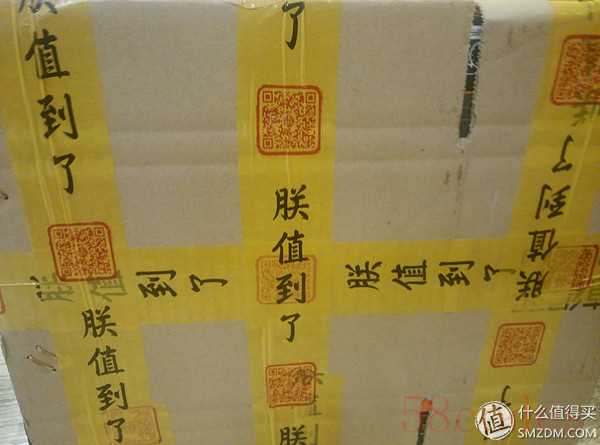 朕值到了
了
朕值到了
朕值到了
朕值到了
朕值到了
朕值到了
朕值
朕
了
值 什么值得买
SMZDM.COM